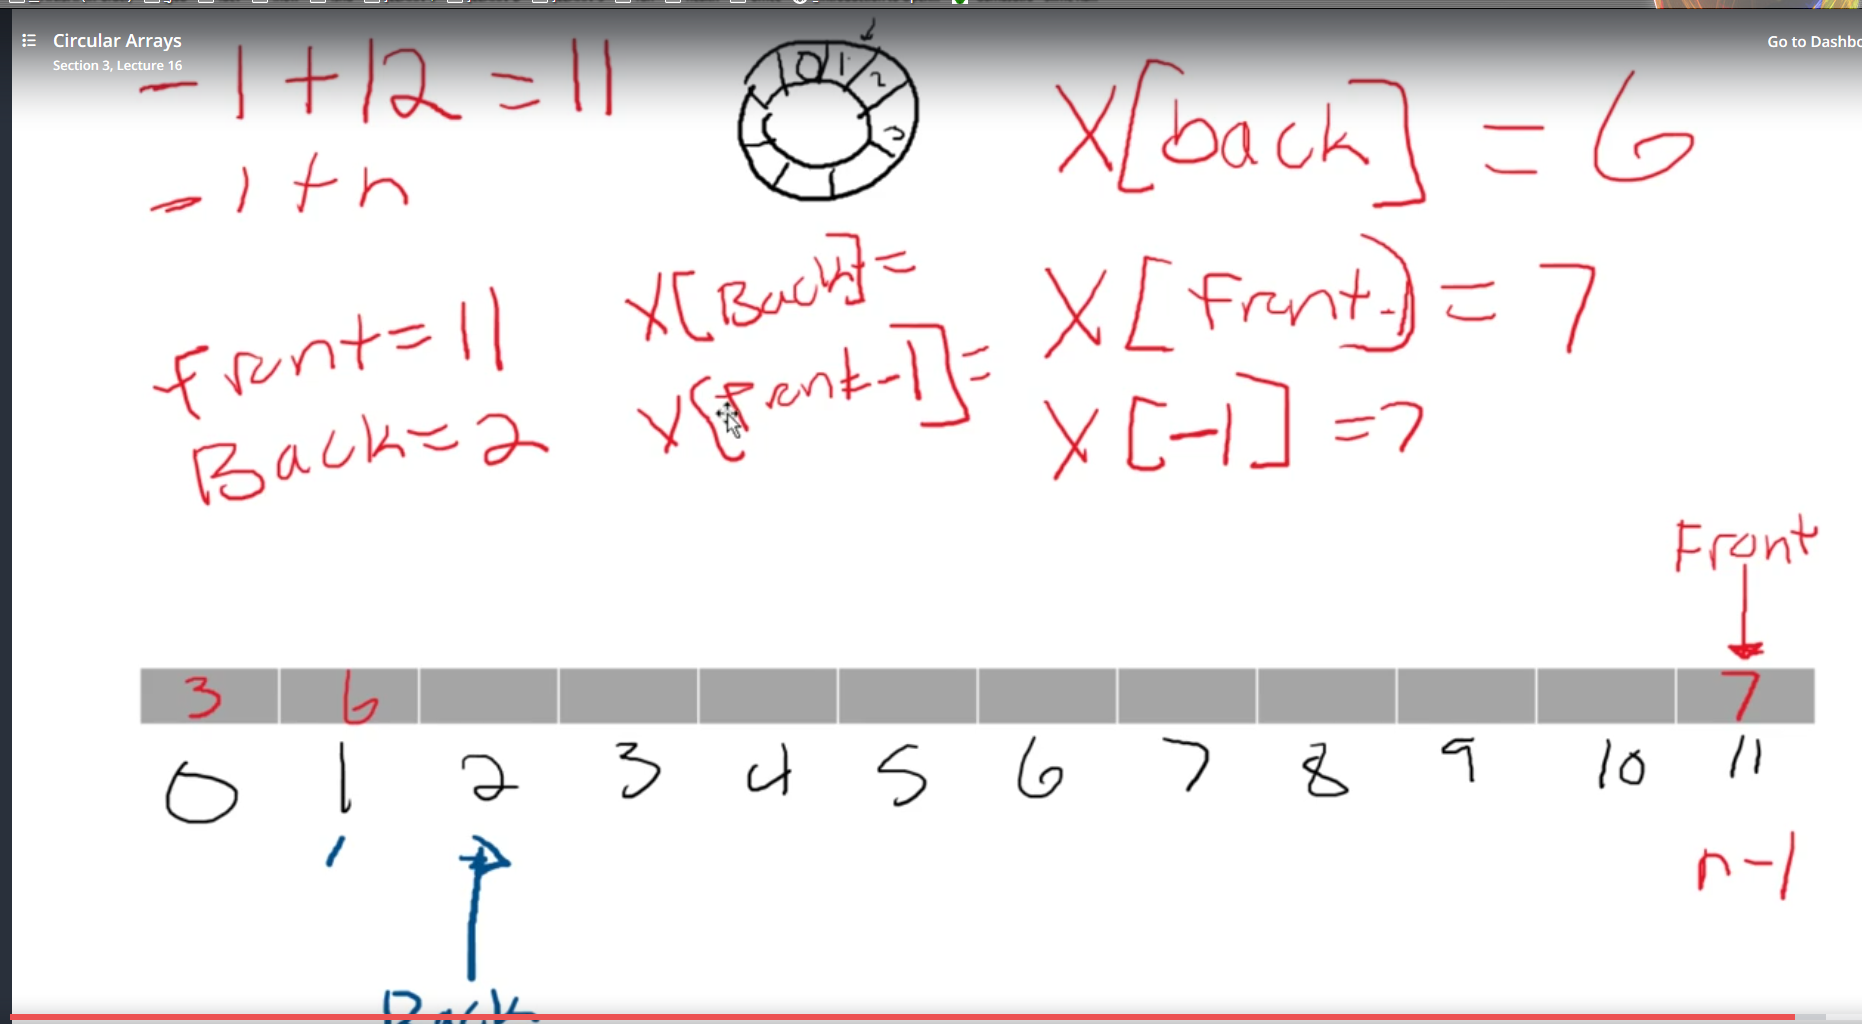 Circular Arrays
Section 3, Lecture 16
Go to Dashbo
-1+12=11
-1+n
0 1 2 3
X[back] = 6
Front=11
Back=2
X[Back]=
X[Front-1]=
X[Front-1]=7
X[-1]=7
Front
3 6 7
0 1 2 3 4 5 6 7 8 9 10 11
n-1
Back